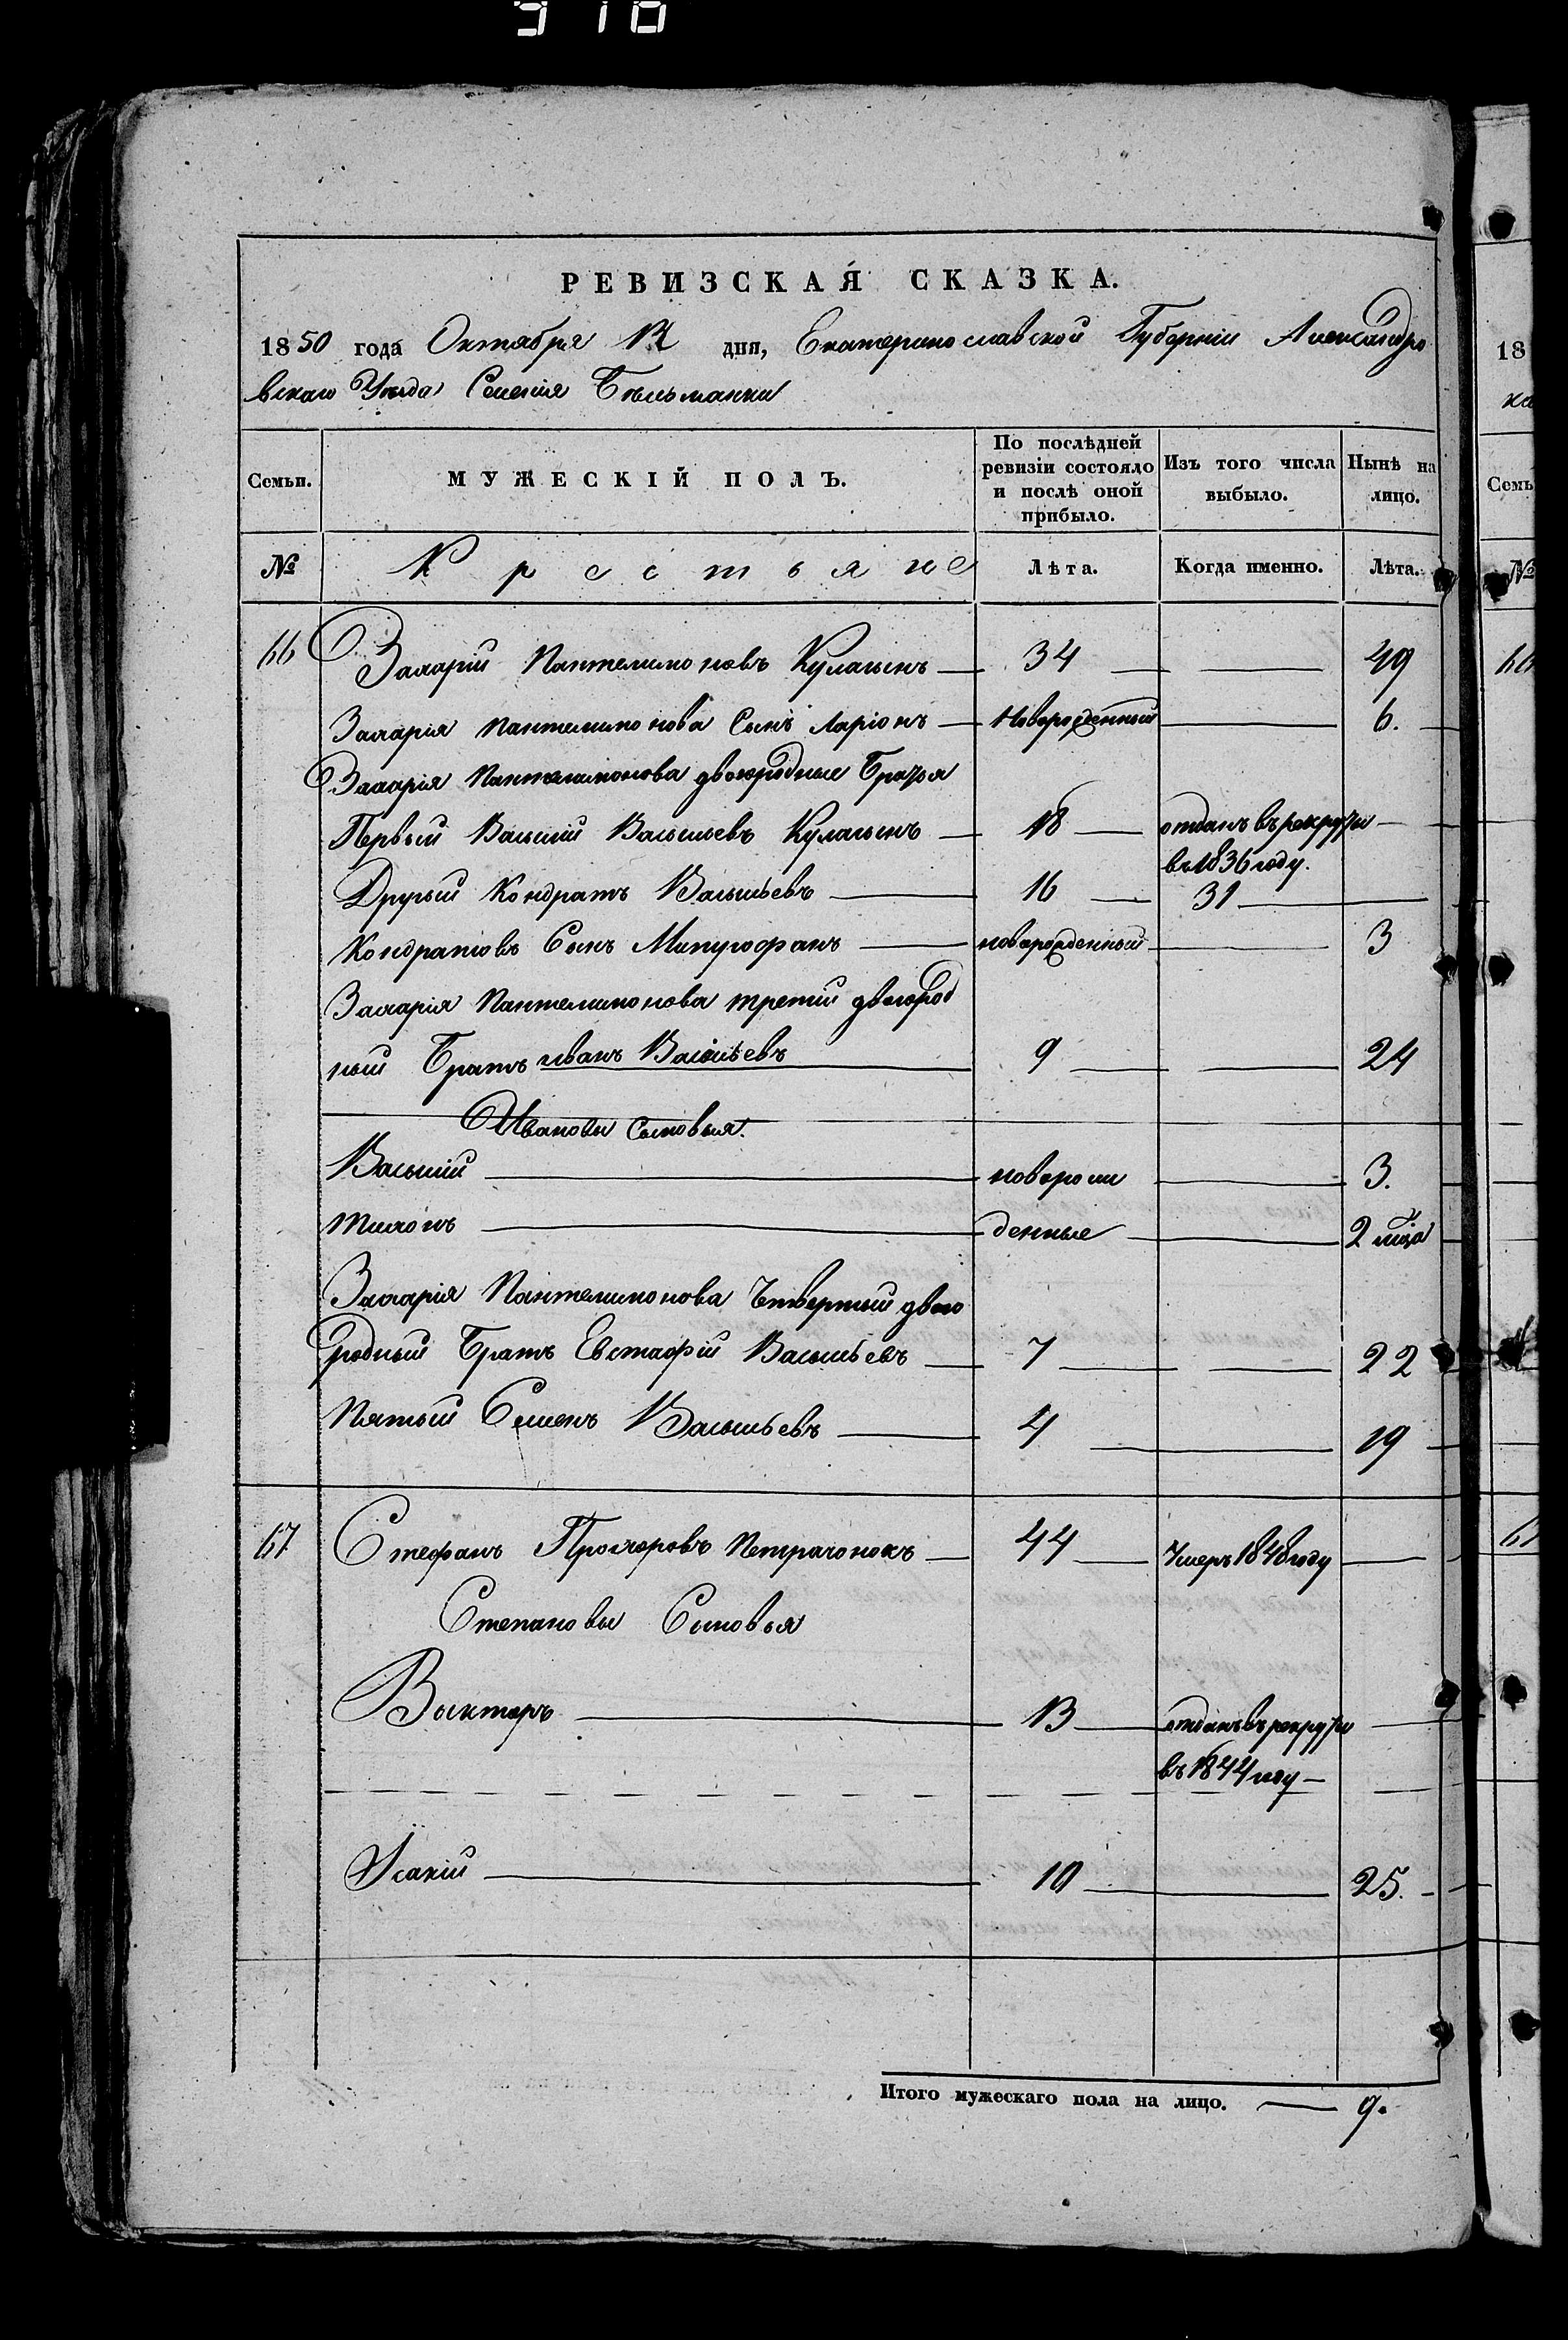 910
РЕВИЗСКАЯ СКАЗКА.
1850 года Октября 12 дня, Екатеринославской Губерніи Александро
вскаго Уѣзда Селенія Бѣльманки
Семьи. МУЖЕСКІЙ ПОЛЪ. По послѣдней ревизіи состояло и послѣ оной прибыло. Изъ того числа выбыло. Нынѣ на лицо.
№ Крестьяне Лѣта. Когда именно. Лѣта.
66 Захарій Пантелимоновъ Кулагинъ 34 49
Захарія Пантелимонова Сынъ Ларіонъ Новорожденный 6.
Захарія Пантелимонова двоюродные Братья
Первый Василій Васильевъ Кулагинъ 18 отданъ въ рекруты
въ 1836 году.
Другій Кондратъ Васильевъ 16 31
Кондратовъ Сынъ Митрофанъ новорожденный 3
Захарія Пантелимонова третій двоюрод
ный Братъ Иванъ Васильевъ 9 24
Ивановы Сыновья.
Василій новорож 3.
Тихонъ денные 2 мѣсяца
Захарія Пантелимонова Четвертый двою
родный Братъ Евстафій Васильевъ 7 22
Пятый Семенъ Васильевъ 4 19
67 Стефанъ Прохоровъ Петрачонокъ 44 Умеръ 1848 году
Степановы Сыновья
Викторъ 13 отданъ въ рекруты
въ 1844 году
Исакій 10 25.
Итого мужескаго пола на лицо. 9.
18
Семь
№